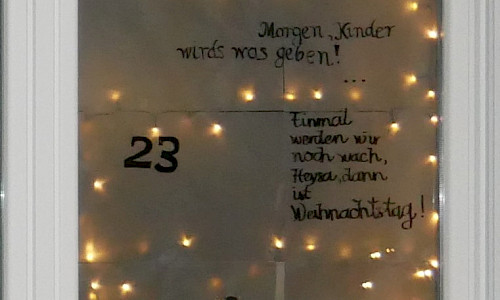 Morgen, Kinder
wirds was geben!
...
23
Einmal
werden wir
noch wach,
Heysa, dann
ist
Weihnachtstag!